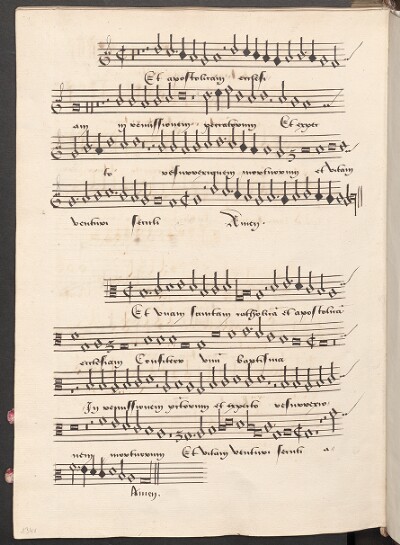 Et apostolicam eccle
am in remissionem peccatorum Et expec
to resurrectionem mortuorum et vitam
venturi seculi Amen.
Et vnam sanctam catholicā et apostolicā
ecclesiam Confiteor vnū baptisma
In remissionem pctorum et expecto resurrectio
nem mortuorum Et vitam venturi seculi a
Amen.